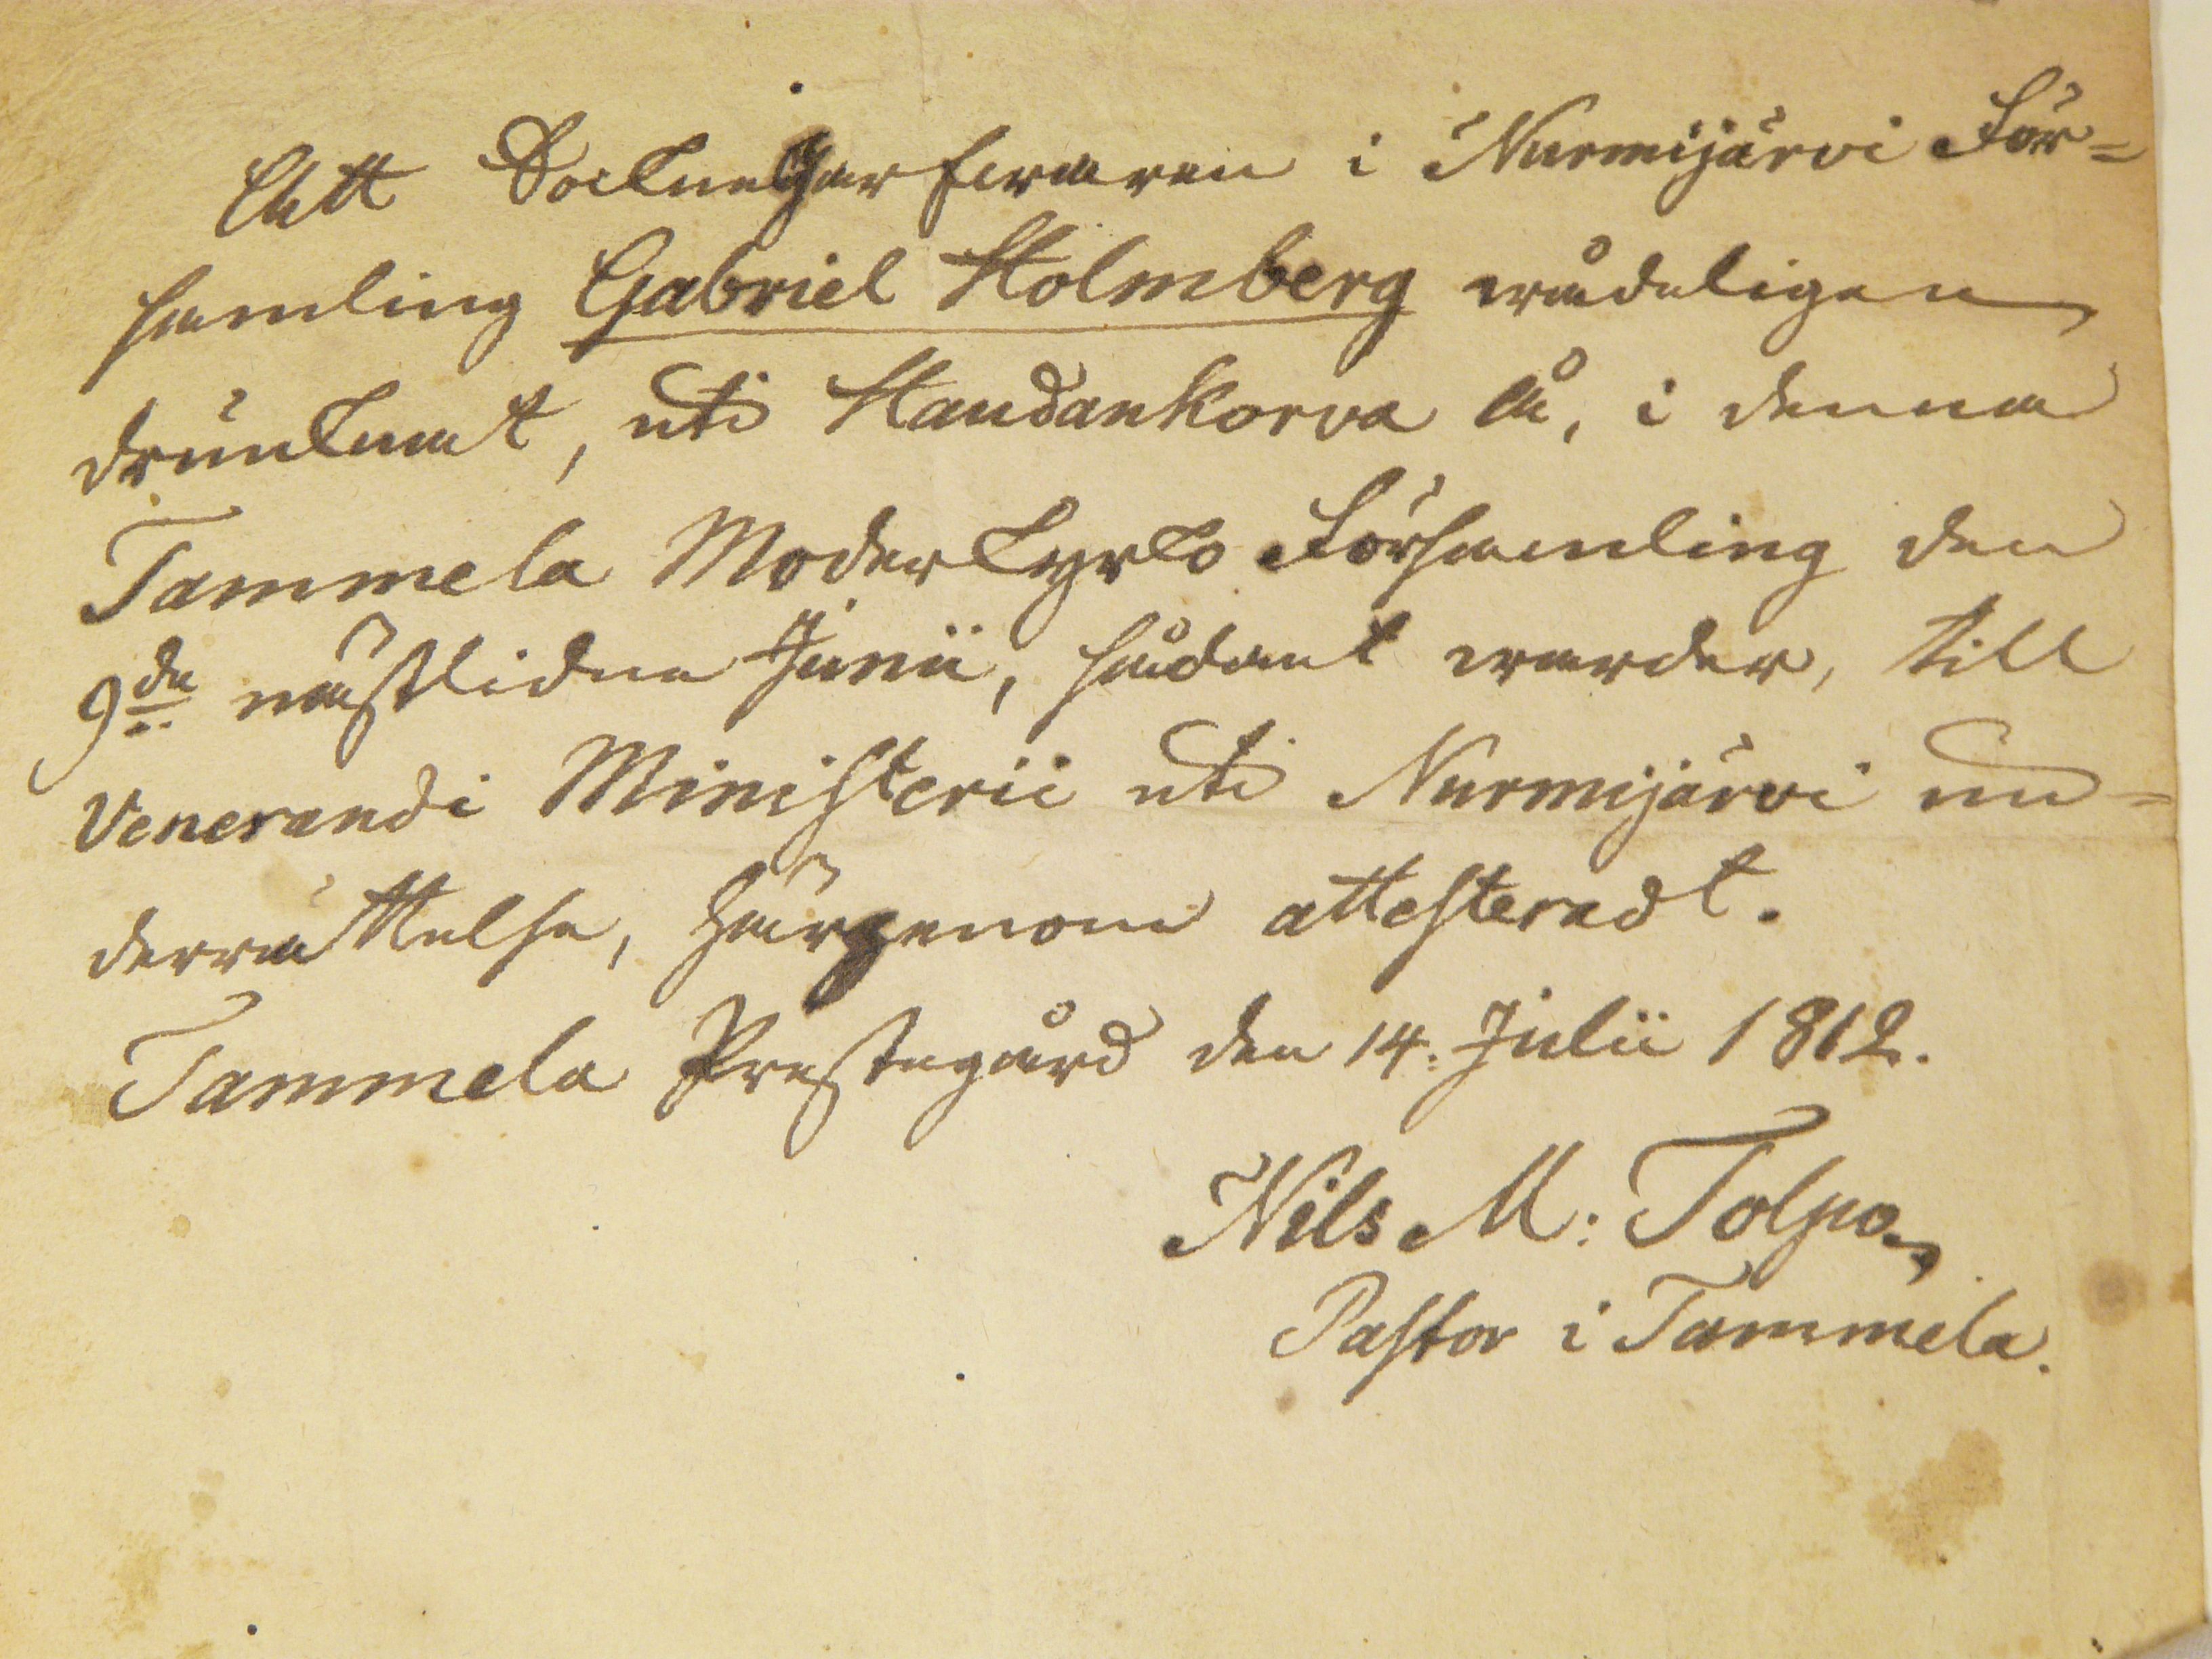 Att Sockne Garfwaren i Nurmijärvi För=
samling Gabriel Holmberg wådeligen
drunknat, uti Haudankorva Å, i denna
Tammela Moderkyrko Församling den
9de nästlidne Junii, sådant warder, till
Venerandi Ministerii uti Nurmijärvi un=
derrättelse, härgenom attesteradt.
Tammela Prestegård den 14. Julii 1812.
Nils M: Tolpo.
Pastor i Tammela.